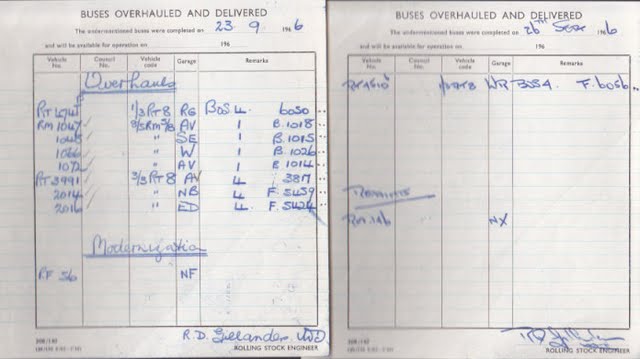 BUSES OVERHAULED AND DELIVERED
The undermentioned buses were completed on 23 9 1966
and will be available for operation on 196
Vehicle No. Council No. Vehicle code Garage Remarks
Overhauls
RT 1/3 RT 8 RG BOS 4 6050
RM 1047 AV 1 B.1018
" SE 1 B.1015
1066 " W 1 B.1026
1072 " AV 1 B.1014
RT 3991 3/3 RT 8 AV 4 3817
2014 " NB 4 F.5439
2016 " ED 4 F.5424
Modernization
RF 56 NF
R.D. Gillander
ROLLING STOCK ENGINEER
BUSES OVERHAULED AND DELIVERED
The undermentioned buses were completed on 26TH Sept 1966
and will be available for operation on 196
Vehicle No. Council No. Vehicle code Garage Remarks
WR BOS 4. F.6056
Repaints
RM.146 NX
ROLLING STOCK ENGINEER